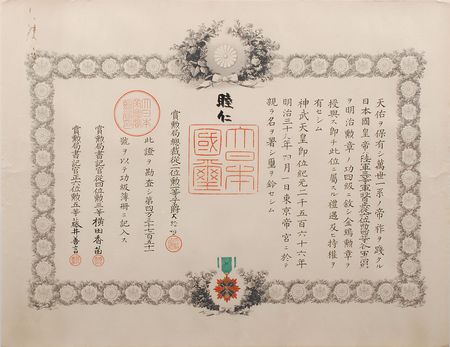 天佑ヲ保有シ萬世一系ノ帝祚ヲ踐タル
日本國皇帝ハ陸軍
ヲ明治勳章ノ功四級ニ敍シ金鵄勳章ヲ
授與ス即チ此位ニ屬スル禮遇及ヒ特權ヲ
有セシム
神武天皇即位紀元二千五百六十六年
明治三十九年四月一日東京帝宮ニ於テ
親ラ名ヲ署シ璽ヲ鈐セシム
睦仁
大日本
國璽
賞勳局總裁從二位勳一等子爵大給恒
此證ヲ勘査シ第四万
號ヲ以テ功級簿冊ニ記入ス
賞勳局書記官從四位勳三等横田香苗
賞勳局書記官正六位勳五等藤井善言